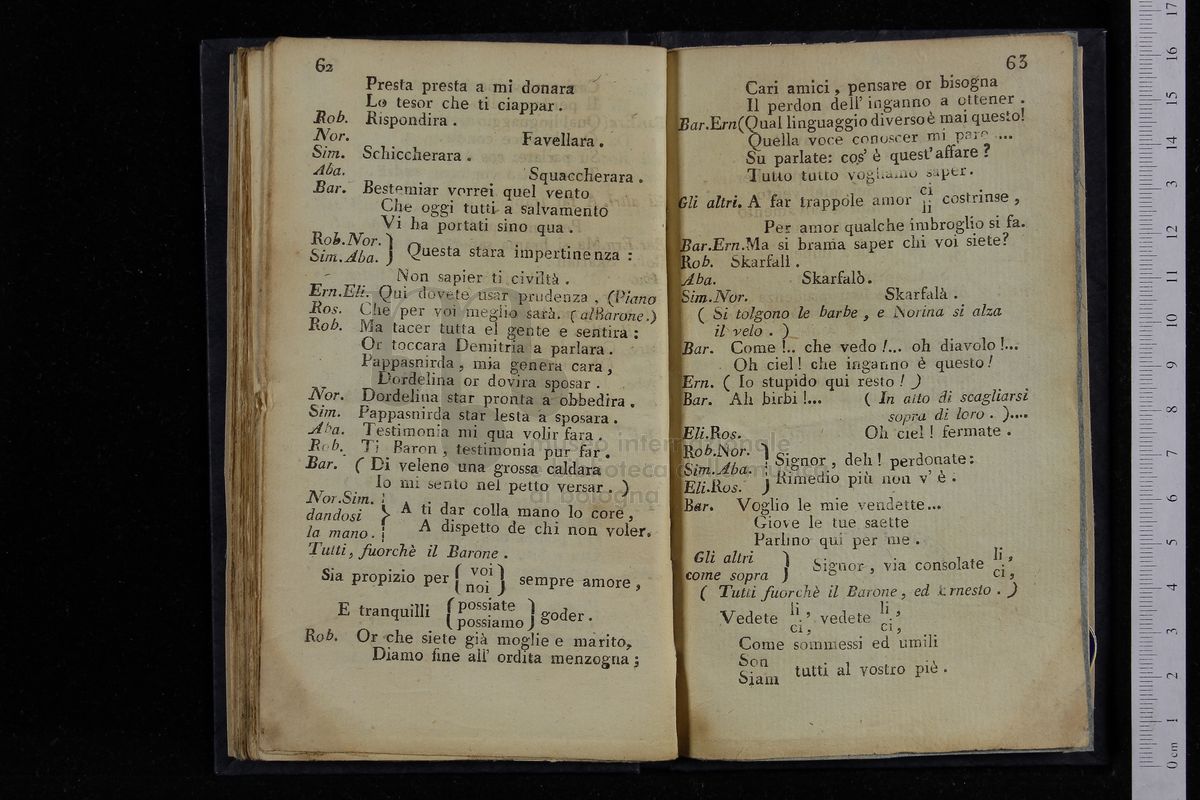 62
Presta presta a mi donara
Lo tesor che ti ciappar.
Rob. Rispondira.
Nor. Favellara.
Sim. Schiccherara.
Aba. Squaccherara.
Bar. Bestemiar vorrei quel vento
Che oggi tutti a salvamento
Vi ha portati sino qua.
Rob.Nor. }
Sim.Aba. } Questa stara impertinenza:
Non sapier ti civiltà.
Ern.Eli. Qui dovete usar prudenza, (Piano
Ros. Che per voi meglio sarà. (al Barone.)
Rob. Ma tacer tutta el gente e sentira:
Or toccara Demitria a parlara.
Pappasnirda, mia genera cara,
Dordelina or dovira sposar.
Nor. Dordelina star pronta a obbedira.
Sim. Pappasnirda star lesta a sposara.
Aba. Testimonia mi qua volir fara.
Rob. Ti Baron, testimonia pur far.
Bar. (Di veleno una grossa caldara
Io mi sento nel petto versar.)
Nor.Sim.
dandosi } A ti dar colla mano lo core,
la mano. A dispetto de chi non voler.
Tutti, fuorchè il Barone.
Sia propizio per { voi / noi } sempre amore,
E tranquilli { possiate / possiamo } goder.
Rob. Or che siete già moglie e marito,
Diamo fine all' ordita menzogna;
63
Cari amici, pensare or bisogna
Il perdon dell' inganno a ottener.
Bar.Ern(Qual linguaggio diverso è mai questo!
Quella voce conoscer mi pare ...
Su parlate: cos' è quest' affare?
Tutto tutto vogliamo saper.
Gli altri. A far trappole amor ci / li costrinse,
Per amor qualche imbroglio si fa.
Bar.Ern.Ma si brama saper chi voi siete?
Rob. Skarfali.
Aba. Skarfalò.
Sim.Nor. Skarfalà.
(Si tolgono le barbe, e Norina si alza
il velo.)
Bar. Come!.. che vedo!... oh diavolo!...
Oh ciel! che inganno è questo!
Ern. (Io stupido qui resto!)
Bar. Ah birbi!... (In atto di scagliarsi
sopra di loro.)....
Eli.Ros. Oh ciel! fermate.
Rob.Nor. }
Sim.Aba. } Signor, deh! perdonate:
Eli.Ros. } Rimedio più non v' è.
Bar. Voglio le mie vendette...
Giove le tue saette
Parlino qui per me.
Gli altri }
come sopra } Signor, via consolate li, / ci,
(Tutti fuorchè il Barone, ed Ernesto.)
Vedete li, / ci, vedete li, / ci,
Come sommessi ed umili
Son / Siam tutti al vostro piè.
museo internazionale
e biblioteca della musica
di bologna
0 cm 1 2 3 4 5 6 7 8 9 10 11 12 13 14 15 16 17